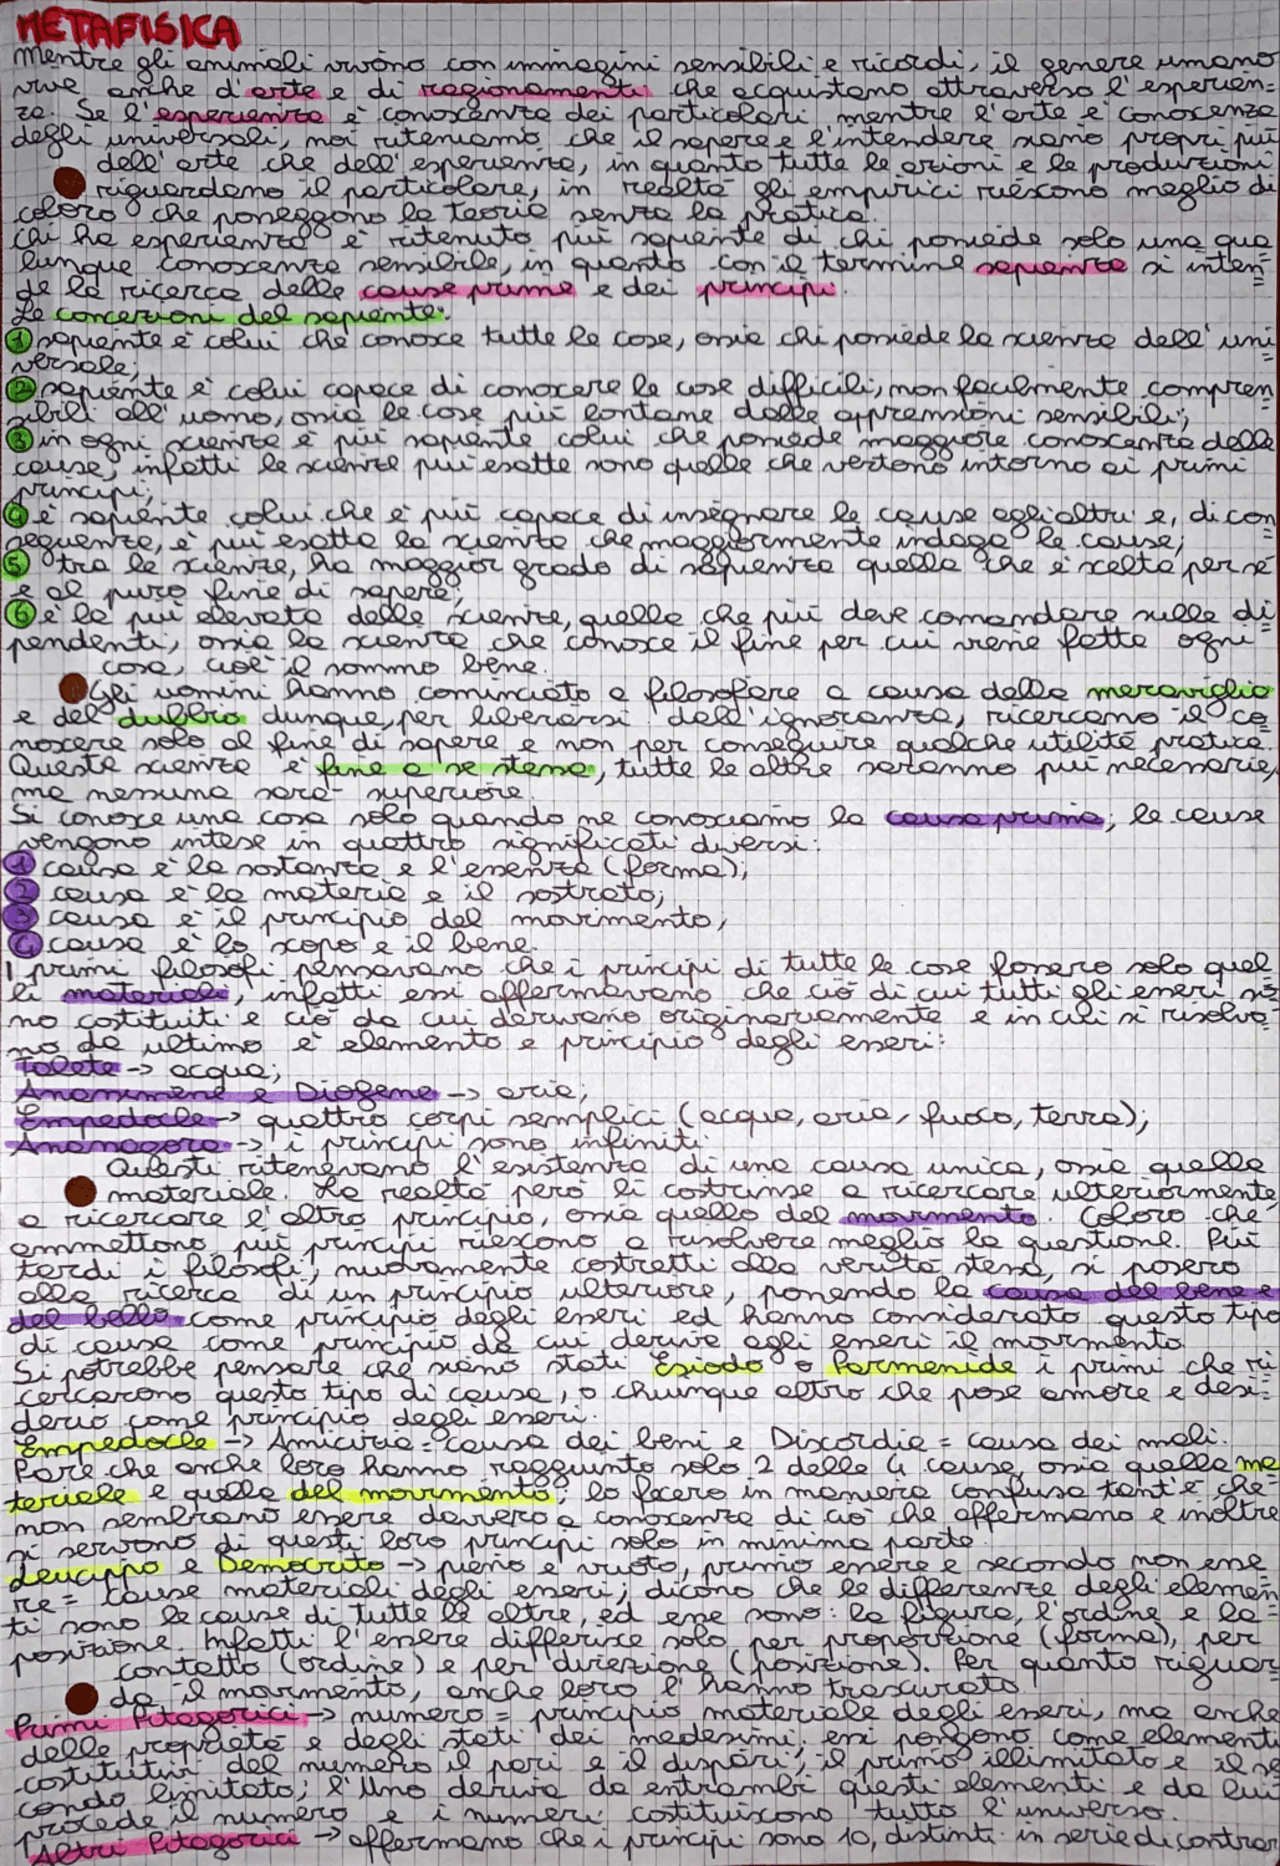 METAFISICA
Mentre gli animali vivono con immagini sensibili e ricordi, il genere umano
vive anche d'arte e di ragionamenti che acquistano attraverso l'esperien=
za. Se l'esperienza è conoscenza dei particolari mentre l'arte è conoscenza
degli universali, noi riteniamo che il sapere e l'intendere siano propri più
dell'arte che dell'esperienza, in quanto tutte le azioni e le produzioni
riguardano il particolare, in realtà gli empirici riescono meglio di
coloro che posseggono la teoria senza la pratica.
Chi ha esperienza è ritenuto più sapiente di chi possiede solo una qua=
lunque conoscenza sensibile, in quanto con il termine sapienza si inten=
de la ricerca delle cause prime e dei principi.
Le concezioni del sapiente:
1 sapiente è colui che conosce tutte le cose, ossia chi possiede la scienza dell'uni=
versale;
2 sapiente è colui capace di conoscere le cose difficili, non facilmente compren=
sibili all'uomo, ossia le cose più lontane dalle apprensioni sensibili;
3 in ogni scienza è più sapiente colui che possiede maggiore conoscenza delle
cause, infatti le scienze più esatte sono quelle che vertono intorno ai primi
principi;
4 è sapiente colui che è più capace di insegnare le cause agli altri e, di con=
seguenza, è più esatta la scienza che maggiormente indaga le cause;
5 tra le scienze, ha maggior grado di sapienza quella che è scelta per sé
e al puro fine di sapere;
6 è la più elevata delle scienze, quella che più deve comandare sulle di=
pendenti, ossia la scienza che conosce il fine per cui viene fatta ogni
cosa, cioè il sommo bene.
Gli uomini hanno cominciato a filosofare a causa della meraviglia
e del dubbio dunque, per liberarsi dall'ignoranza, ricercano il co=
noscere solo al fine di sapere e non per conseguire qualche utilità pratica.
Questa scienza è fine a se stessa, tutte le altre saranno più necessarie,
ma nessuna sarà superiore.
Si conosce una cosa solo quando ne conosciamo la causa prima; le cause
vengono intese in quattro significati diversi:
1 causa è la sostanza e l'essenza (forma);
2 causa è la materia e il sostrato;
3 causa è il principio del movimento;
4 causa è lo scopo e il bene.
I primi filosofi pensavano che i principi di tutte le cose fossero solo quel=
li materiali, infatti essi affermavano che ciò di cui tutti gli esseri so=
no costituiti e ciò da cui derivano originariamente e in cui si risolvo=
no da ultimo è elemento e principio degli esseri:
Talete -> acqua;
Anassimene e Diogene -> aria;
Empedocle -> quattro corpi semplici (acqua, aria, fuoco, terra);
Anassagora -> i principi sono infiniti.
Questi ritenevano l'esistenza di una causa unica, ossia quella
materiale. La realtà però li costrinse a ricercare ulteriormente,
a ricercare l'altro principio, ossia quello del movimento. Coloro che
ammettono più principi riescono a risolvere meglio la questione. Più
tardi i filosofi, nuovamente costretti alla verità stessa, si posero
alla ricerca di un principio ulteriore, ponendo la causa del bene e
del bello come principio degli esseri ed hanno considerato questo tipo
di causa come principio da cui deriva agli esseri il movimento.
Si potrebbe pensare che siano stati Esiodo o Parmenide i primi che ri=
cercarono questo tipo di causa, o chiunque altro che pose amore e desi=
derio come principio degli esseri.
Empedocle -> Amicizia = causa dei beni e Discordia = causa dei mali.
Pare che anche loro hanno raggiunto solo 2 delle 4 cause, ossia quella ma=
teriale e quella del movimento; lo fecero in maniera confusa tant'è che
non sembrano essere davvero a conoscenza di ciò che affermano e inoltre
si servono di questi loro principi solo in minima parte.
Leucippo e Democrito -> pieno e vuoto, primo essere e secondo non esse=
re = cause materiali degli esseri; dicono che le differenze degli elemen=
ti sono le cause di tutte le altre, ed esse sono: la figura, l'ordine e la
posizione. Infatti l'essere differisce solo per proporzione (forma), per
contatto (ordine) e per direzione (posizione). Per quanto riguar=
da il movimento, anche loro l'hanno trascurato!
Primi Pitagorici -> numero = principio materiale degli esseri, ma anche
delle proprietà e degli stati dei medesimi; essi pongono come elementi
costitutivi del numero il pari e il dispari; il primo illimitato e il se=
condo limitato; l'Uno deriva da entrambi questi elementi e da lui
procede il numero e i numeri costituiscono tutto l'universo.
Altri Pitagorici -> affermano che i principi sono 10, distinti in serie di contrar